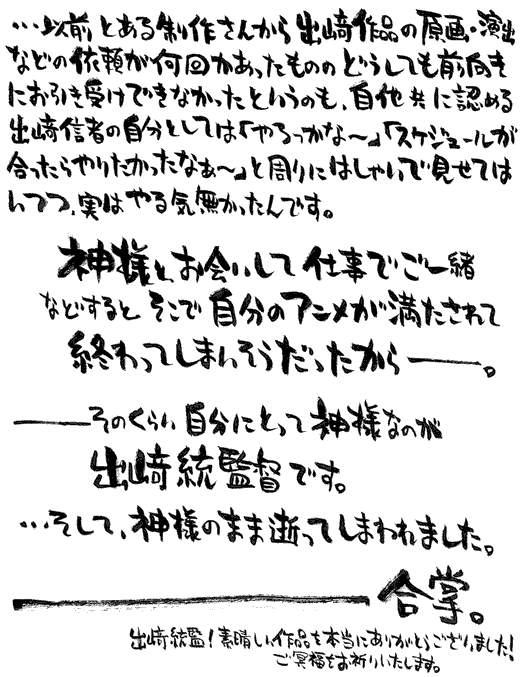 …以前とある制作さんから出﨑作品の原画・演出
などの依頼が何回かあったもののどうしても前向き
にお引き受けできなかったというのも、自他共に認める
出﨑信者の自分としては「やろっかな～」「スケジュールが
合ったらやりたかったなぁ～」と周りにはしゃいで見せては
いつつ、実はやる気無かったんです。
神様とお会いして仕事でご一緒
などすると そこで自分のアニメが満たされて
終わってしまいそうだったから―――。
―――そのくらい自分にとって神様なのが
出﨑統監督です。
…そして、神様のまま逝ってしまわれました。
―――――――合掌。
出﨑統監！素晴しい作品を本当にありがとうございました！
ご冥福をお祈りいたします。